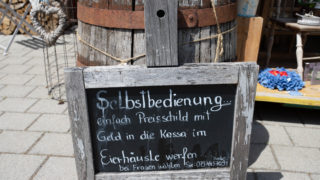 Selbstbedienung...
einfach Preisschild mit
Geld in die Kassa im
Eierhäusle werfen
bei Fragen wählen Sie: